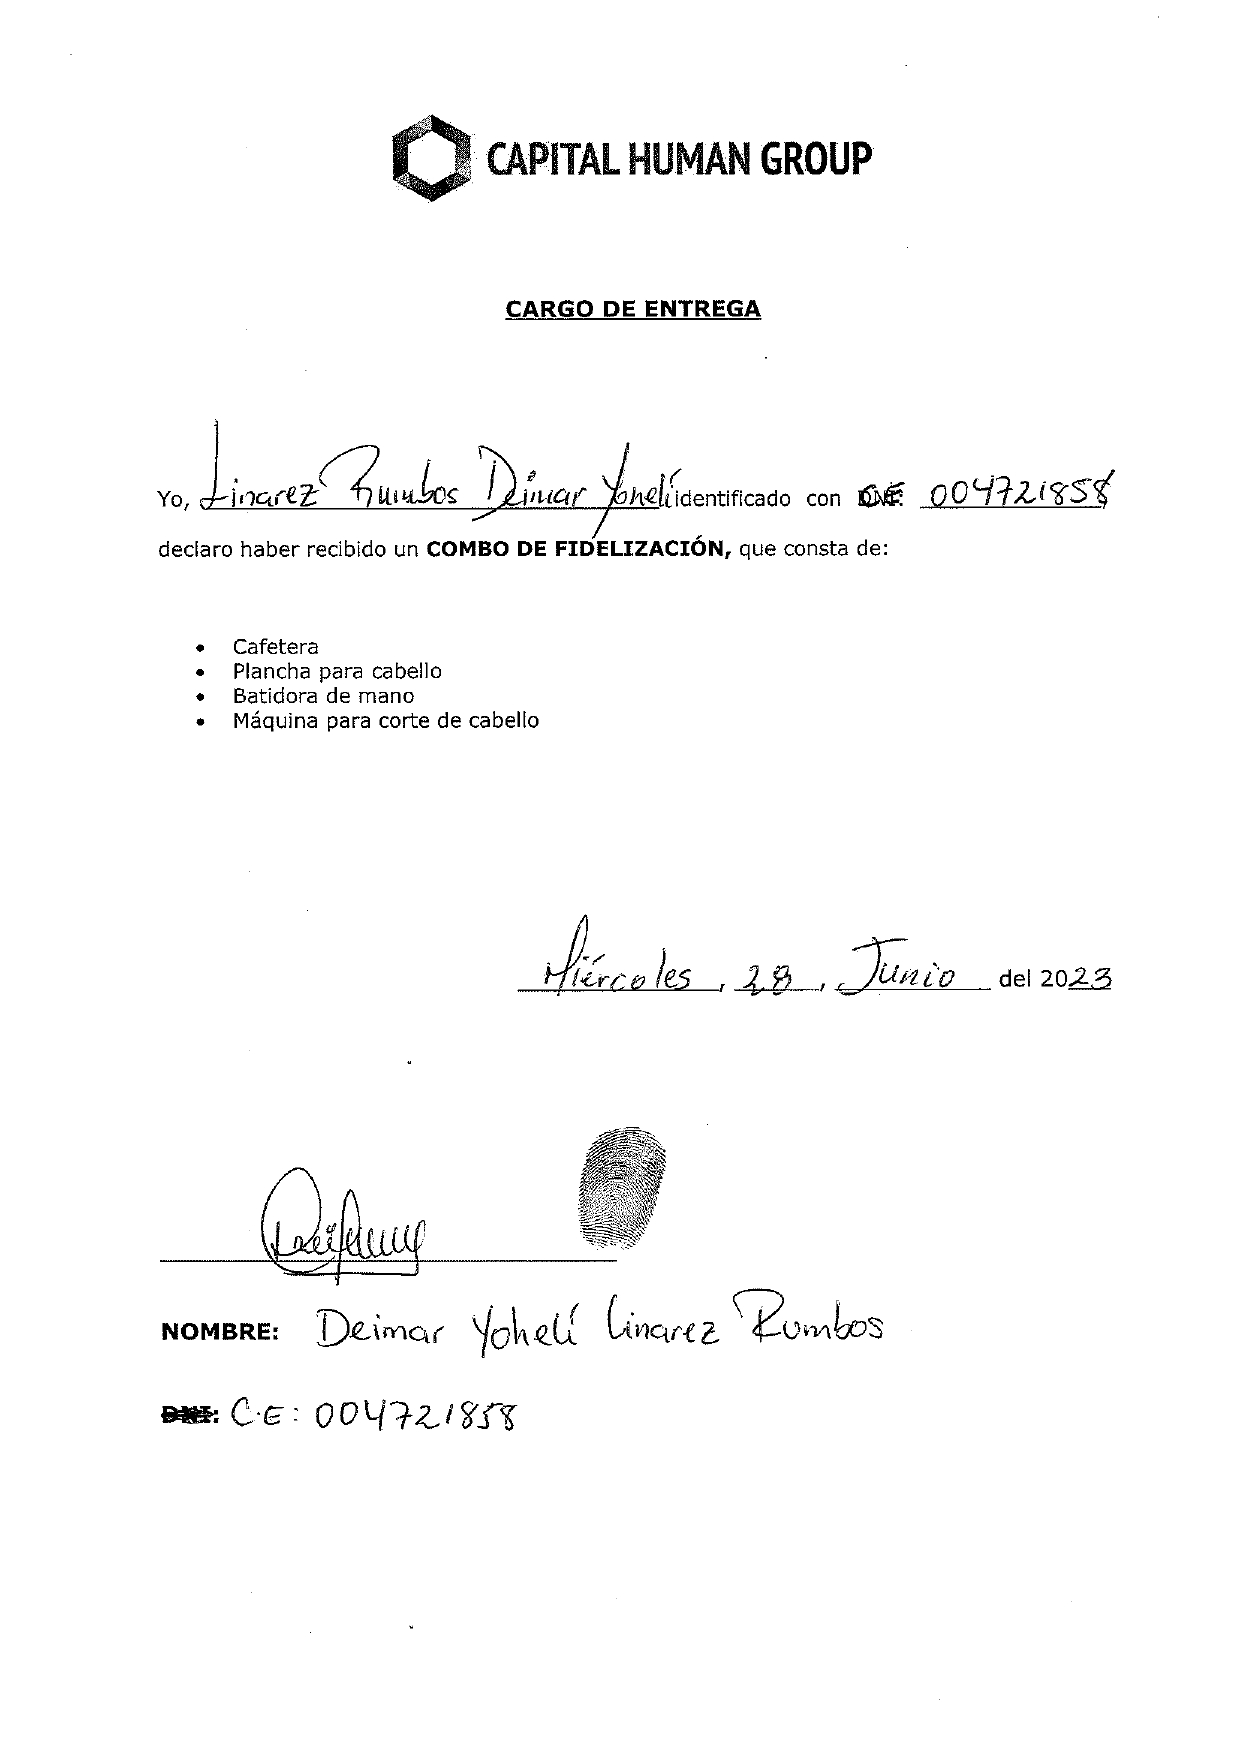 CAPITAL HUMAN GROUP
CARGO DE ENTREGA
Yo, Linarez Rumbos Deimar Yohelí identificado con CE 004721858
declaro haber recibido un COMBO DE FIDELIZACIÓN, que consta de:
• Cafetera
• Plancha para cabello
• Batidora de mano
• Máquina para corte de cabello
Miércoles, 28, Junio del 2023
NOMBRE: Deimar Yohelí Linarez Rumbos
DNI: C.E: 004721858